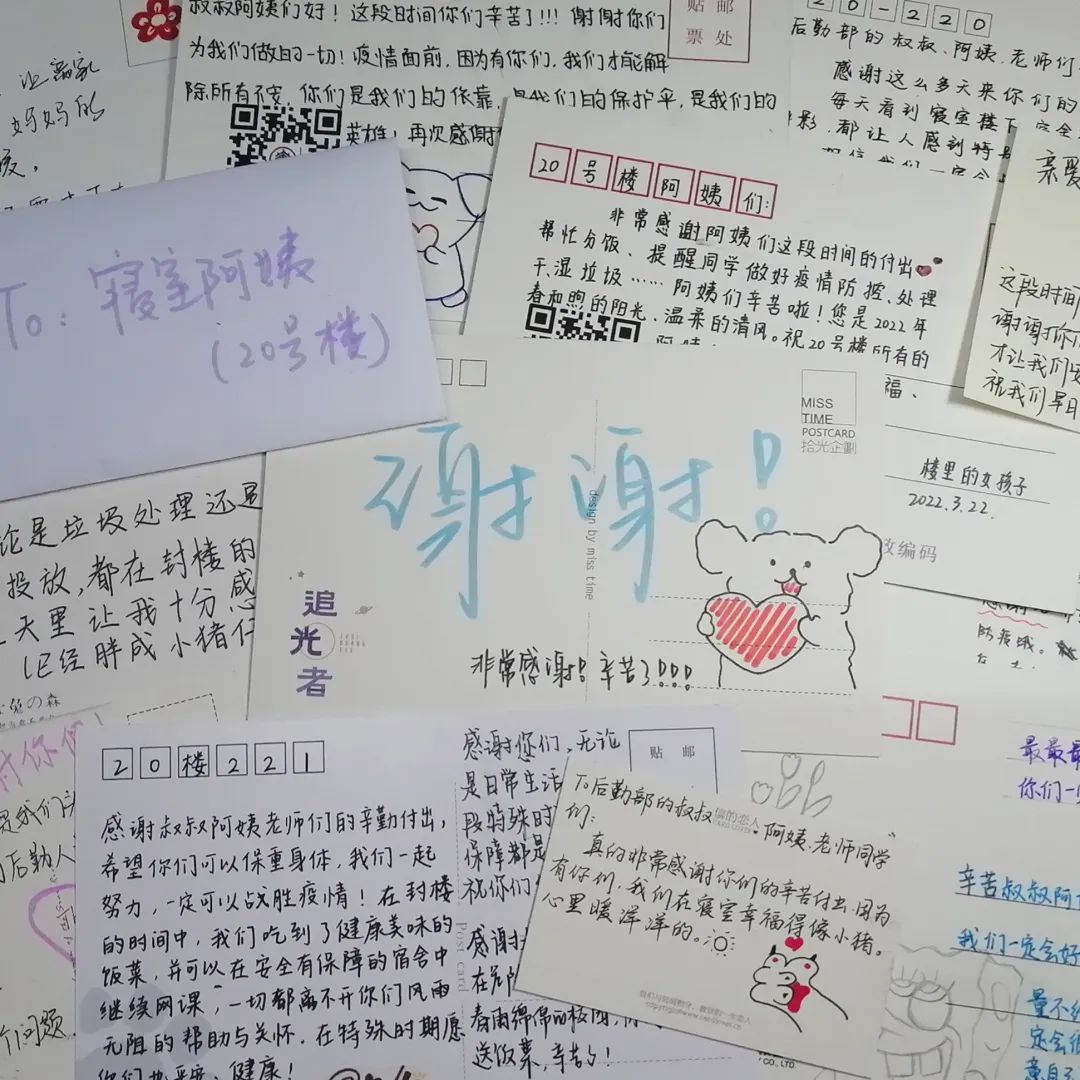 叔叔阿姨们好！这段时间你们辛苦了!!! 谢谢你们
为我们做的一切！疫情面前，因为有你们，我们才能解
除所有不安，你们是我们的依靠，是我们的保护伞，是我们的
英雄！再次感谢
贴 邮
票 处
20-220
后勤部的叔叔、阿姨、老师们
感谢这么多天来你们的
每天看到寝室楼下
都让人感到特
妈妈的
20号楼阿姨们：
非常感谢阿姨们这段时间的付出
帮忙分饭、提醒同学做好疫情防控、处理
干、湿垃圾……阿姨们辛苦啦！您是2022年
春和煦的阳光、温柔的清风。祝20号楼所有的
福、
亲爱
这段时间
谢谢你们
才让我们安
祝我们早日
To: 寝室阿姨
(20号楼)
MISS
TIME
POSTCARD
拾光企劃
谢谢！
design by miss time
追光者
非常感谢！辛苦了!!!
楼里的女孩子
2022.3.22.
政编码
防疫哦。
论是垃圾处理还是
投放，都在封楼的
天里让我十分感
已经胖成小猪仔
兔の森
20楼221
感谢叔叔阿姨老师们的辛勤付出，
希望你们可以保重身体，我们一起
努力，一定可以战胜疫情！在封楼
的时间中，我们吃到了健康美味的
饭菜，并可以在安全有保障的宿舍中
继续网课，一切都离不开你们风雨
无阻的帮助与关怀。在特殊时期愿
健康！
贴 邮
感谢你们，无论
是日常生活
段特殊时
保障都是
祝你们
Post card
感谢
在危险
春雨绵绵的校园，
送饭菜，辛苦了！
To后勤部的叔叔、阿姨、老师同学
们：
真的非常感谢你们的辛苦付出，因为
有你们，我们在寝室幸福得像小猪。
心里暖洋洋的。
CO., LTD.
最最最
你们一
辛苦叔叔阿
我们一定会好
量不给
定会很
后勤人
个问题.